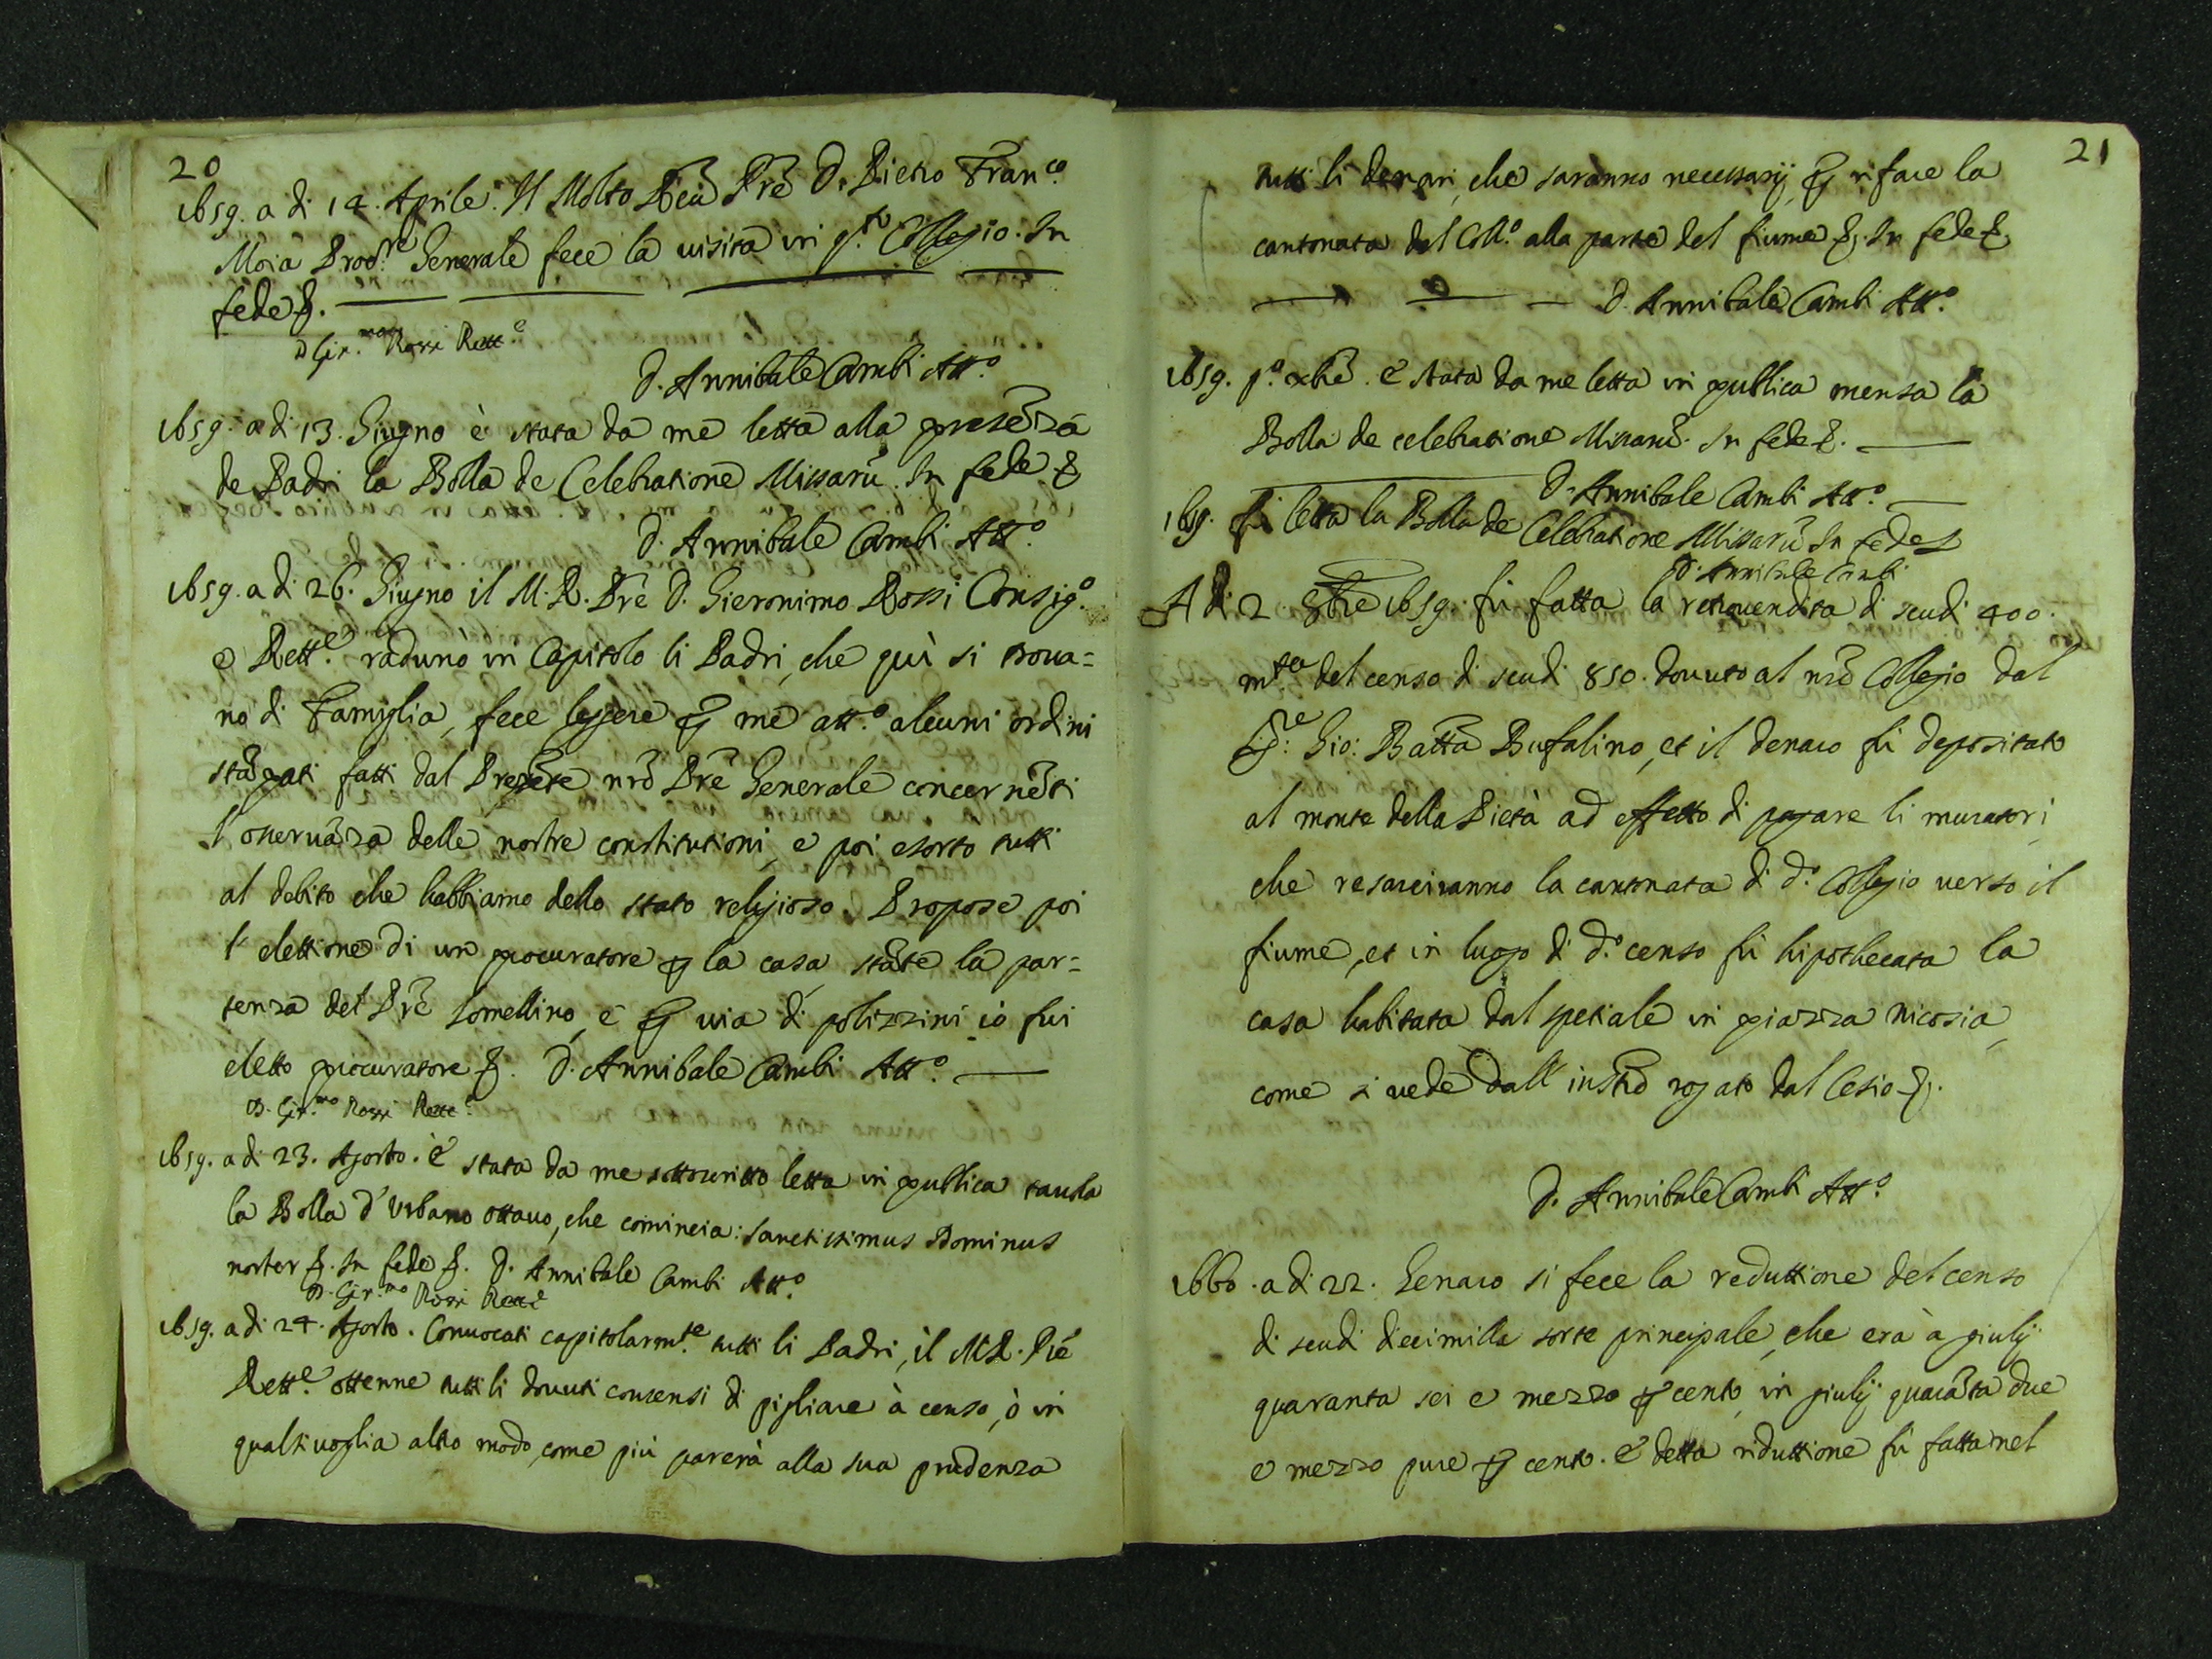 20
1659. a di 14. Aprile. Il Molto Rēu Prē D. Pietro Fran.co
Moia Proc.re Generale fece la uisita in q.to Collegio. In
fede &.
D Gir.mo Rossi Rett.e
D. Annibale Cambi Att.o
1659. a di 13. Giugno è stata da me letta alla presēza
de Padri la Bolla de Celebratione Missarū. In fede &
D. Annibale Cambi Att.o
1659. a di 26. Giugno il M. R. Prē D. Gieronimo Rossi Consig.o
e Rett.e radunò in Capitolo li Padri, che quì si troua=
no di Famiglia, fece leggere ꝑ me att.o alcuni ordini
stāpati fatti dal Presēte nrō Prē Generale concernēti
l'osseruāza delle nostre constitutioni, e poi esorto tutti
al debito che habbiamo dello stato religioso. Propose poi
l'elettione di un procuratore ꝑ la casa, stāte la par=
tenza del Prē Lomellino, e ꝑ uia di polizzini io fui
eletto procuratore &. D. Annibale Cambi Att.o
D. Gir.mo Rossi Rett.e
1659. a di 23. Agosto. è stata da me sottoscritto letta in publica tauola
la Bolla d'Urbano ottauo, che comincia: Sanctissimus Dominus
noster &. In fede &. D. Annibale Cambi Att.o
D. Gir.mo Rossi Rett.e
1659. a di 24. Agosto. Conuocati capitolarm.te tutti li Padri, il M R. Prē
Rett.e ottenne tutti li douuti consensi di pigliare à censo, ò in
qualsiuoglia altro modo, come più parerà alla sua prudenza
21
tutti li denari, che saranno necessarij ꝑ rifare la
cantonata del Coll.o alla parte del fiume &. In fede &.
D. Annibale Cambi Att.o
1659. p.o xbrē. è stata da me letta in publica mensa la
Bolla de celebratione Missarū. In fede &.
D. Annibale Cambi Att.o
1659. fù letta la Bolla de Celebratione Missarū In fede &
D. Annibale Cambi
A di 2. 8bre 1659. fù fatta la retrouendita di scudi 400.
m.ta del censo di scudi 850. douuto al nrō Collegio dal
Sig.e Gio: Battā Bufalino, et il denaro fù depositato
al monte della Pietà ad effetto di pagare li muratori,
che resarciranno la cantonata di d.o Collegio uerso il
fiume, et in luogo di d.o censo fù hipothecata la
casa habitata dal spetiale in piazza nicosia,
come si uede dall' instrō rogato dal Cesio &.
D. Annibale Cambi Att.o
1660. a di 22. Genaro si fece la reduttione del censo
di scudi diecimilla sorte principale, che era à giulij
quaranta sei e mezzo ꝑ cento, in giulij quarāta due
e mezzo pure ꝑ cento. e detta riduttione fù fatta nel